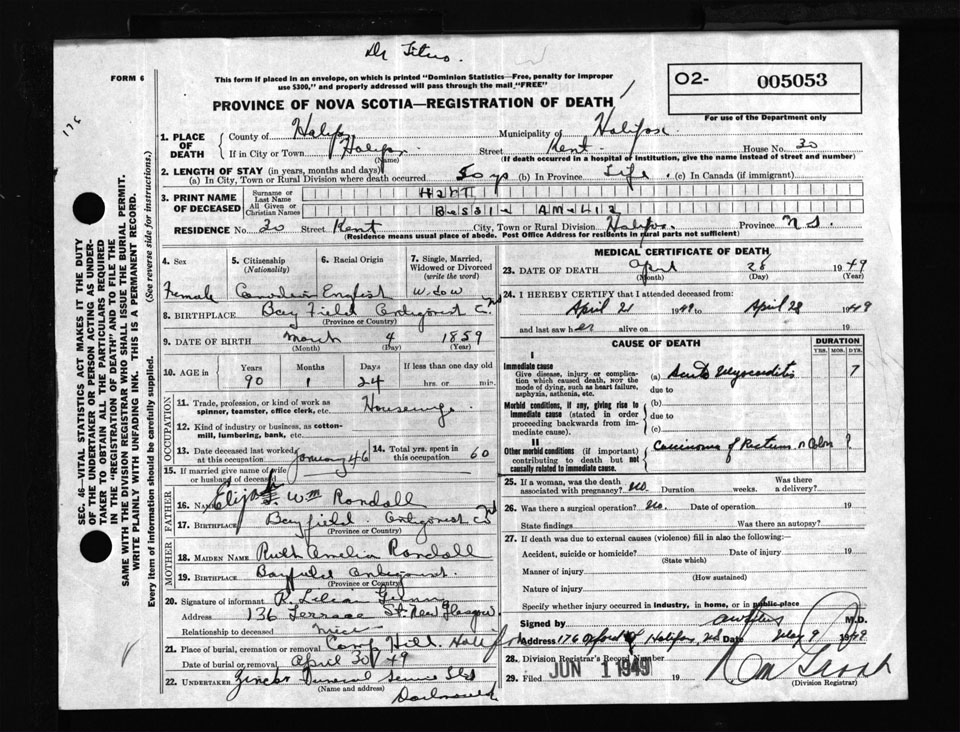 Dr Titus.
FORM 6
This form if placed in an envelope, on which is printed "Dominion Statistics—Free, penalty for improper
use $300," and properly addressed will pass through the mail "FREE"
O2- 005053
For use of the Department only
PROVINCE OF NOVA SCOTIA—REGISTRATION OF DEATH
1. PLACE OF DEATH
County of Halifax Municipality of Halifax
If in City or Town Halifax (Name) Street Kent House No. 30
(If death occurred in a hospital or institution, give the name instead of street and number)
2. LENGTH OF STAY (in years, months and days)
(a) In City, Town or Rural Division where death occurred 50 yrs (b) In Province Life. (c) In Canada (if immigrant)
3. PRINT NAME OF DECEASED
Surname or Last Name HART
All Given or Christian Names BESSIE AMELIA
RESIDENCE No. 30 Street Kent City, Town or Rural Division Halifax Province N S.
(Residence means usual place of abode. Post Office Address for residents in rural parts not sufficient)
4. Sex
Female
5. Citizenship (Nationality)
Canadian
6. Racial Origin
English
7. Single, Married, Widowed or Divorced (write the word)
Widow
8. BIRTHPLACE Bay Field Antigonish Co
(Province or Country)
9. DATE OF BIRTH March 4 1859
(Month) (Day) (Year)
10. AGE in Years Months Days If less than one day
90 1 24 hrs. or min.
OCCUPATION
11. Trade, profession, or kind of work as
spinner, teamster, office clerk, etc. Housewife
12. Kind of industry or business, as cotton-
mill, lumbering, bank, etc.
13. Date deceased last worked at this occupation January 46
14. Total yrs. spent in this occupation 60
15. If married give name of wife or husband of deceased
FATHER
16. NAME Wm Randall
17. BIRTHPLACE Bayfield Antigonish Co
(Province or Country)
MOTHER
18. MAIDEN NAME Ruth Amelia Randall
19. BIRTHPLACE Bayfield Antigonish.
(Province or Country)
20. Signature of informant R. Lilian
Address 136 Terrace St. New Glasgow
Relationship to deceased niece
21. Place of burial, cremation or removal Camp Hill Halifax
Date of burial or removal April 30/49
22. UNDERTAKER Zinck's Funeral Service Ltd
(Name and address) Dartmouth
MEDICAL CERTIFICATE OF DEATH
23. DATE OF DEATH April 28 1949
(Month) (Day) (Year)
24. I HEREBY CERTIFY that I attended deceased from:
April 21 1949 to April 28 1949
and last saw her alive on 19
CAUSE OF DEATH
DURATION
YRS. MOS. DYS.
I
Immediate cause
Give disease, injury or complication which caused death, NOT the mode of dying, such as heart failure, asphyxia, asthenia, etc.
(a) Acute Myocarditis 7
due to
Morbid conditions, if any, giving rise to immediate cause (stated in order proceeding backwards from immediate cause).
(b)
due to
(c)
II
Other morbid conditions (if important) contributing to death but not causally related to immediate cause.
Carcinoma of Rectum or Colon ?
25. If a woman, was the death associated with pregnancy? No. Duration weeks Was there a delivery?
26. Was there a surgical operation? No. Date of operation 19
State findings Was there an autopsy?
27. If death was due to external causes (violence) fill in also the following:
Accident, suicide or homicide? Date of injury 19
(State which)
Manner of injury
(How sustained)
Nature of injury
Specify whether injury occurred in industry, in home, or in public-place
Signed by M.D.
Address 176 Oxford St Halifax, NS Date May 9 1949
28. Division Registrar's Record Number
29. Filed JUN 1 1949 19
(Division Registrar)
SEC. 46—VITAL STATISTICS ACT MAKES IT THE DUTY
OF THE UNDERTAKER OR PERSON ACTING AS UNDER-
TAKER TO OBTAIN ALL THE PARTICULARS REQUIRED
IN THE "REGISTRATION OF DEATH" AND TO FILE THE
SAME WITH THE DIVISION REGISTRAR WHO SHALL ISSUE THE BURIAL PERMIT.
WRITE PLAINLY WITH UNFADING INK. THIS IS A PERMANENT RECORD.
Every item of information should be carefully supplied. (See reverse side for instructions.)